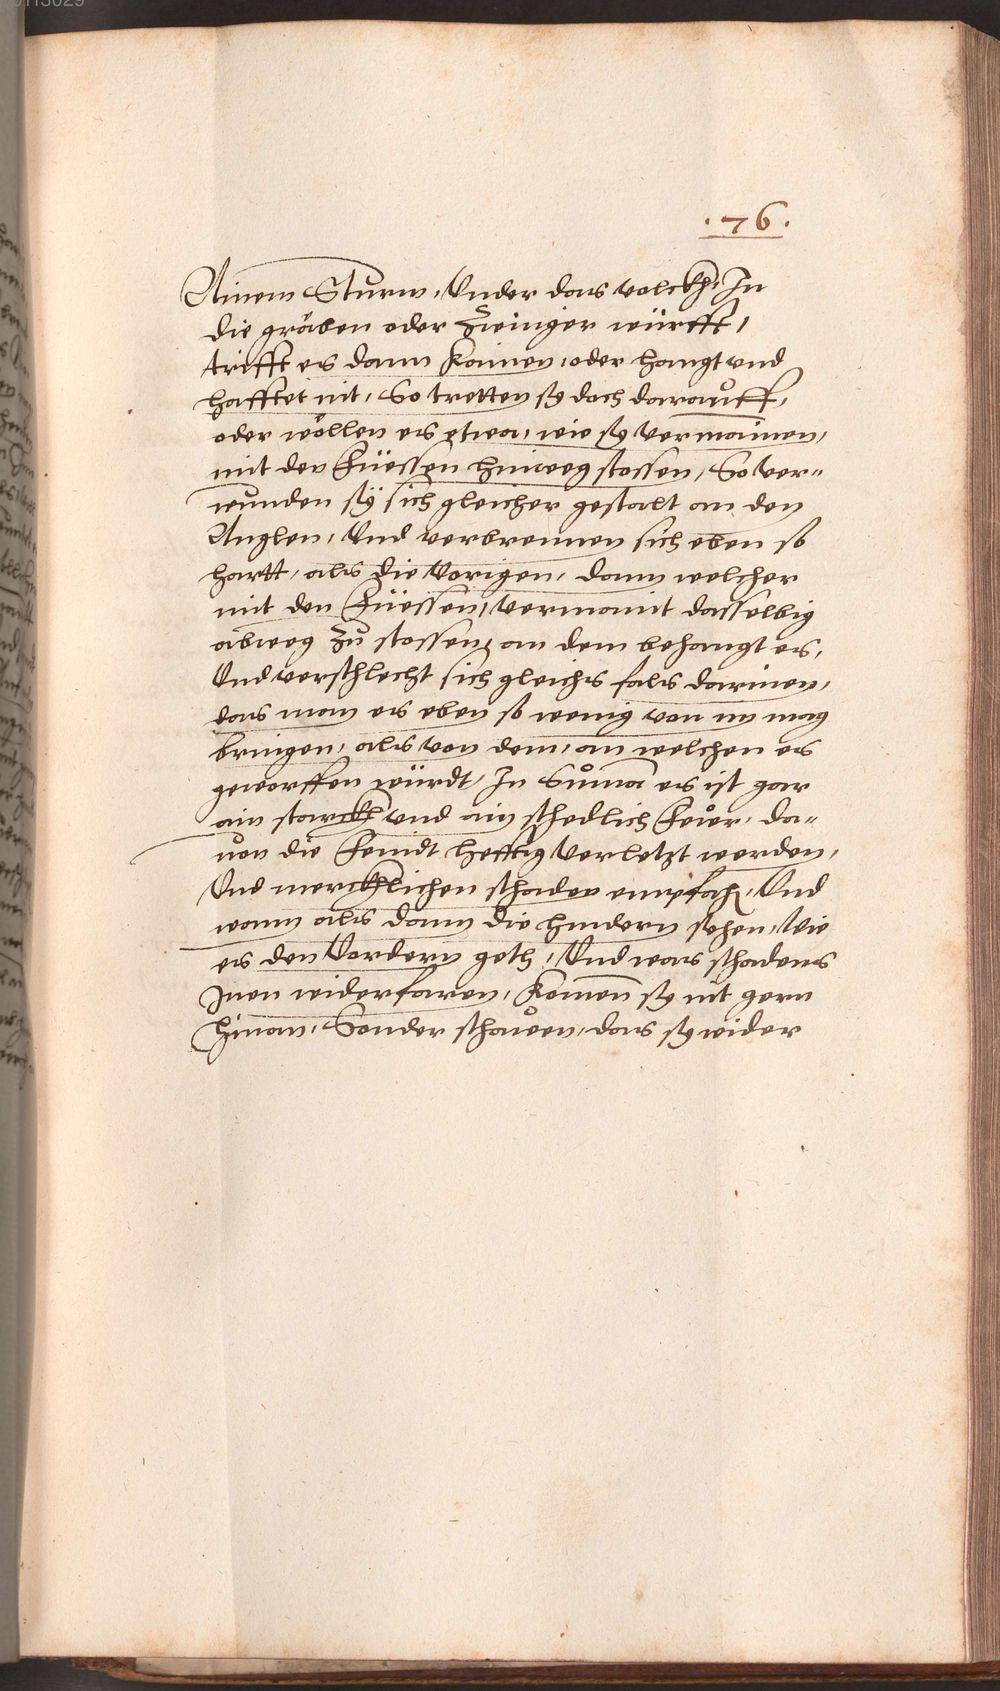 .76.
Ainem Sturm, Vnder das volckh, In
die gräben oder Zwinger würfft,
trifft es dann kainen, oder hangt vnd
hafftet nit, So tretten sy doch darauff,
oder wöllen es etwa, wie sy vermainen,
mit den Füessen hinweg stossen, So ver-
wunden sÿ sich gleicher gestalt an den
Anglen, Vnd verbrennen sich eben so
hartt, als die Vorigen, dann welcher
mit den Füessen, vermaint dasselbig
abweg zu stossen, an dem behangt es,
Vnd verschlecht sich gleichs fals darinen,
das man es eben so wenig von im mag
bringen, als von dem, an welchen es
geworffen würdt, In Suma es ist gar
ain starckh vnd ain schedlich Feur, da-
uon die Feindt hefftig Verletzt werden,
Vnd mercklichen schaden empfahen, Vnd
wann als dann die hindern sehen, Wie
es den Vordern geth, Vnd was schadens
Inen widerfaren, komen sy nit gern
hinan, Sonder schauen, das sy wider